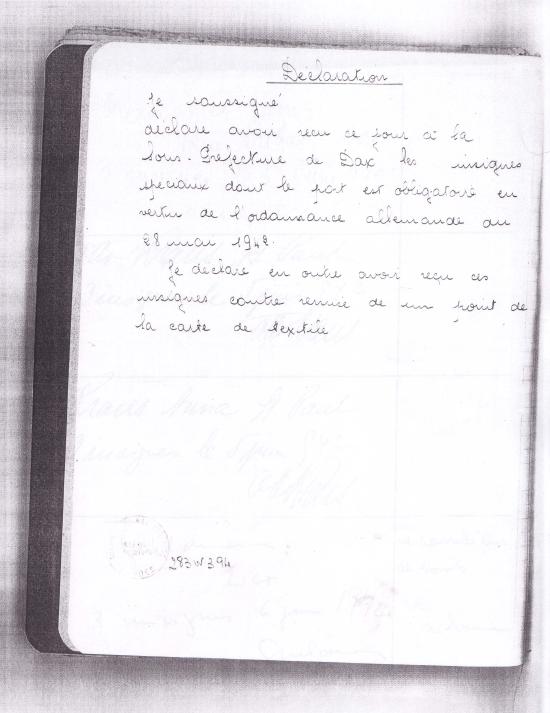 Déclaration
Je soussigné
déclare avoir reçu ce jour à la
Sous-Préfecture de Dax les insignes
spéciaux dont le port est obligatoire en
vertu de l'ordonnance allemande du
28 mai 1942.
Je déclare en outre avoir reçu ces
insignes contre remise de un point de
la carte de textile
283W394